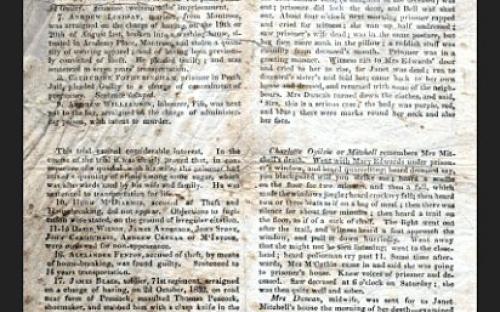 7. ANDREW LINDSAY, from Montrose,
was arraigned on the charge of having, on the 19th or
20th of August last, broken into a washing house, si-
tuated in Academy Place, Montrose, and stolen a quan-
tity of wearing apparel; and of having been previous-
ly convicted of theft. He pleaded Guilty; and was
sentenced to seven years' transportation.
8. CATHERINE FOTHERINGHAM, prisoner in Perth
Jail, pleaded Guilty to a charge of concealment of
pregnancy. Sentence
9. ANDREW WILLIAMSON, labourer, Fife, was next
put to the bar, arraigned on the charge of administer-
ing poison, with intent to murder.
This trial excited considerable interest. In the
course of the trial it was clearly proved that, in con-
sequence of a quarrel with his wife the prisoner had
mixed a quantity of arsenic among some sugar, which
was afterwards used by his wife and family. He was
sentenced to transportation for life.
10. HUGH M'DIARMID, accused of Theft and
Housebreaking, did not appear. Objections to
were stated, on the ground of irregular citation.
11-15 DAVID WISHART, JAMES ANDERSON, JOHN STOTT,
were outlawed for non-appearance.
16. ALEXANDER FENTON, accused of theft, by means
of house-breaking, was found guilty. Sentenced to
14 years transportation.
17. JAMES BLACK, soldier, 71st regiment, arraigned
on a charge of having, on 2d October, 1832, on road
near farm of assaulted Thomas Peacock,
shoemaker, and stabbed him with a clasp knife in the
out; prisoner did lock the door, and Bell was sent
out. About four o'clock next morning prisoner rapped
and cried for witness; she ran up half undressed;
saw prisoner's wife dead; was in the same posture, but
her face more sunk in the pillow; a reddish stuff was
coming from deceased's mouth. Prisoner was in a
greeting manner. Witness ran to Mrs Edwards' door
and cried to her to rise, for Janet was dead; ran to
deceased's sister's and told her; came back to her own
house and dressed, and returned with some of the neigh-
bours. Mrs Duncan turned down the clothes, and said,
'Sirs, this is a serious case;' the body was purple, red,
and blue; there were marks round her neck and also
her face.
Charlotte Ogilvie or Mitchell remembers Mrs Mit-
chell's death. Went with Mary Edwards under prison-
er's window, and heard quarrelling; heard deceased say,
you blackguard will you strike me; heard a
on the floor for two minutes, and then a fall, which
made the windows jingle; heard crockery fall; then heard
two or three blasts as if on a bag of meal; then there was
silence for about four minutes; then heard a trail on
the floor, as if of a sack of stuff. The light went
after the trail, and witness heard a foot approach the
window, and pull it down hurriedly. Went away
that she might not be seen listening; went to the close-
head; heard policeman cry past 11. Some time after-
wards, Mrs M'Cathie came in and said she was going
to prisoner's house. Knew voices of prisoner and de-
ceased. Saw deceased at 6 o'clock on Saturday; she
was then quite well and sober.
Mrs Duncan, midwife, was sent for to Janet
Mitchell's house the morning of her death—examined